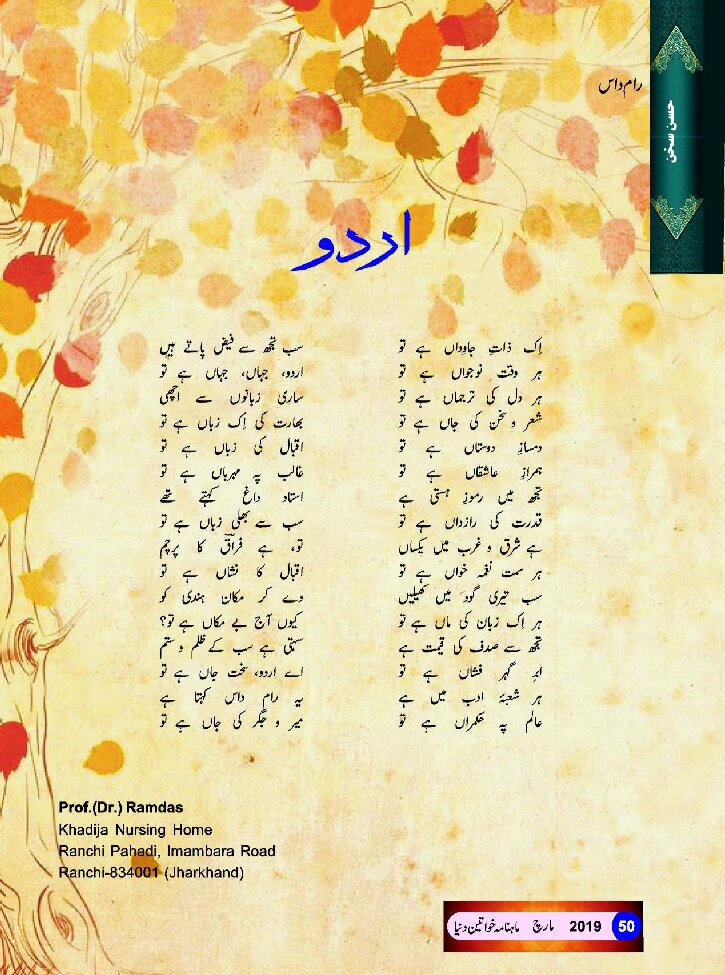 رام داس
حسن سخن
اردو
اِک ذاتِ جاوداں ہے تو
ہر وقت نوجواں ہے تو
ہر دل کی ترجماں ہے تو
شعر و سخن کی جاں ہے تو
دمسازِ دوستاں ہے تو
ہمرازِ عاشقاں ہے تو
تجھ میں رموزِ ہستی ہے
قدرت کی رازداں ہے تو
ہے شرق و غرب میں یکساں
ہر سمت نغمہ خواں ہے تو
سب تیری گود میں کھیلیں
ہر اک زبان کی ماں ہے تو
تجھ سے صدف کی قیمت ہے
ابرِ گہر فشاں ہے تو
ہر شعبۂ ادب میں ہے
عالم پہ حکمراں ہے تو
سب تجھ سے فیض پاتے ہیں
اردو، جہاں، جہاں ہے تو
ساری زبانوں سے اچھی
بھارت کی اِک زباں ہے تو
اقبال کی زباں ہے تو
غالب پہ مہرباں ہے تو
استاد داغ کہتے تھے
سب سے بھلی زباں ہے تو
تو، ہے فراقؔ کا پرچم
اقبال کا نشاں ہے تو
دے کر مکان ہندی کو
کیوں آج بے مکاں ہے تو؟
سہتی ہے سب کے ظلم و ستم
اے اردو، سخت جاں ہے تو
یہ رام داس کہتا ہے
میر و جگر کی جاں ہے تو
Prof.(Dr.) Ramdas
Khadija Nursing Home
Ranchi Pahadi, Imambara Road
Ranchi-834001 (Jharkhand)
ماہنامہ خواتین دنیا مارچ 2019 50